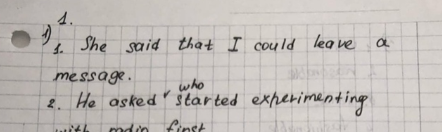 1.
1) 1. She said that I could leave a
message.
2. He asked who started experimenting
with radio first